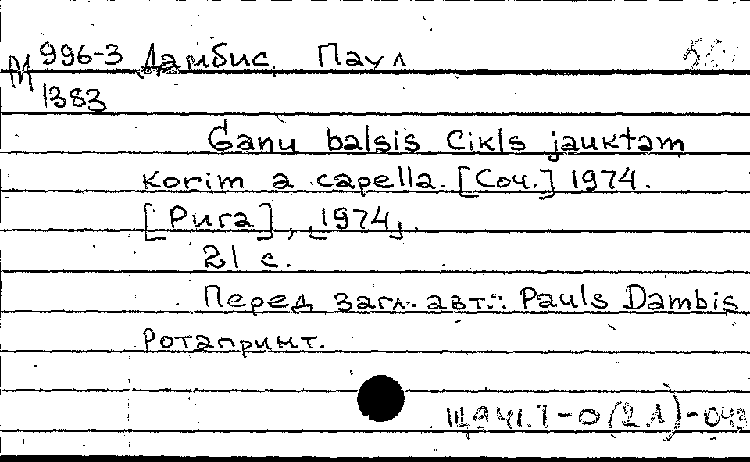 М 996-3 Дамбис, Паул
1383
Ganu balsis. Cikls jauktam
korim a capella. [Соч.] 1974.
[Рига], 1974.
21 с.
Перед загл. авт.: Pauls Dambis
Ротапринт.
Щ941.7-0(2Л)-043